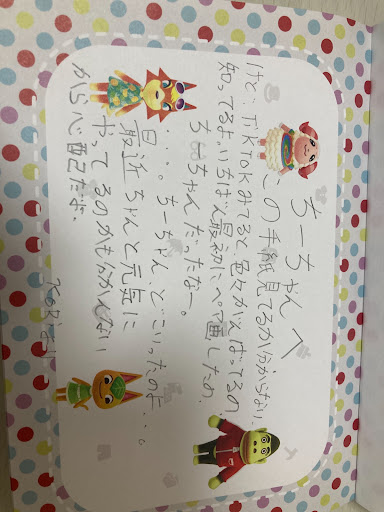 ちーちゃんへ
この手紙見てるか分からない
けど、TikTokみてると、色々がんばってるの
知ってるよ。いちばん最初にペア画したの
ちーちゃんだったなー。
・・・。ちーちゃん、どこいったのよ・・。
最近ちゃんと元気に
やってるのかもわかんない
から心配だよ。
より